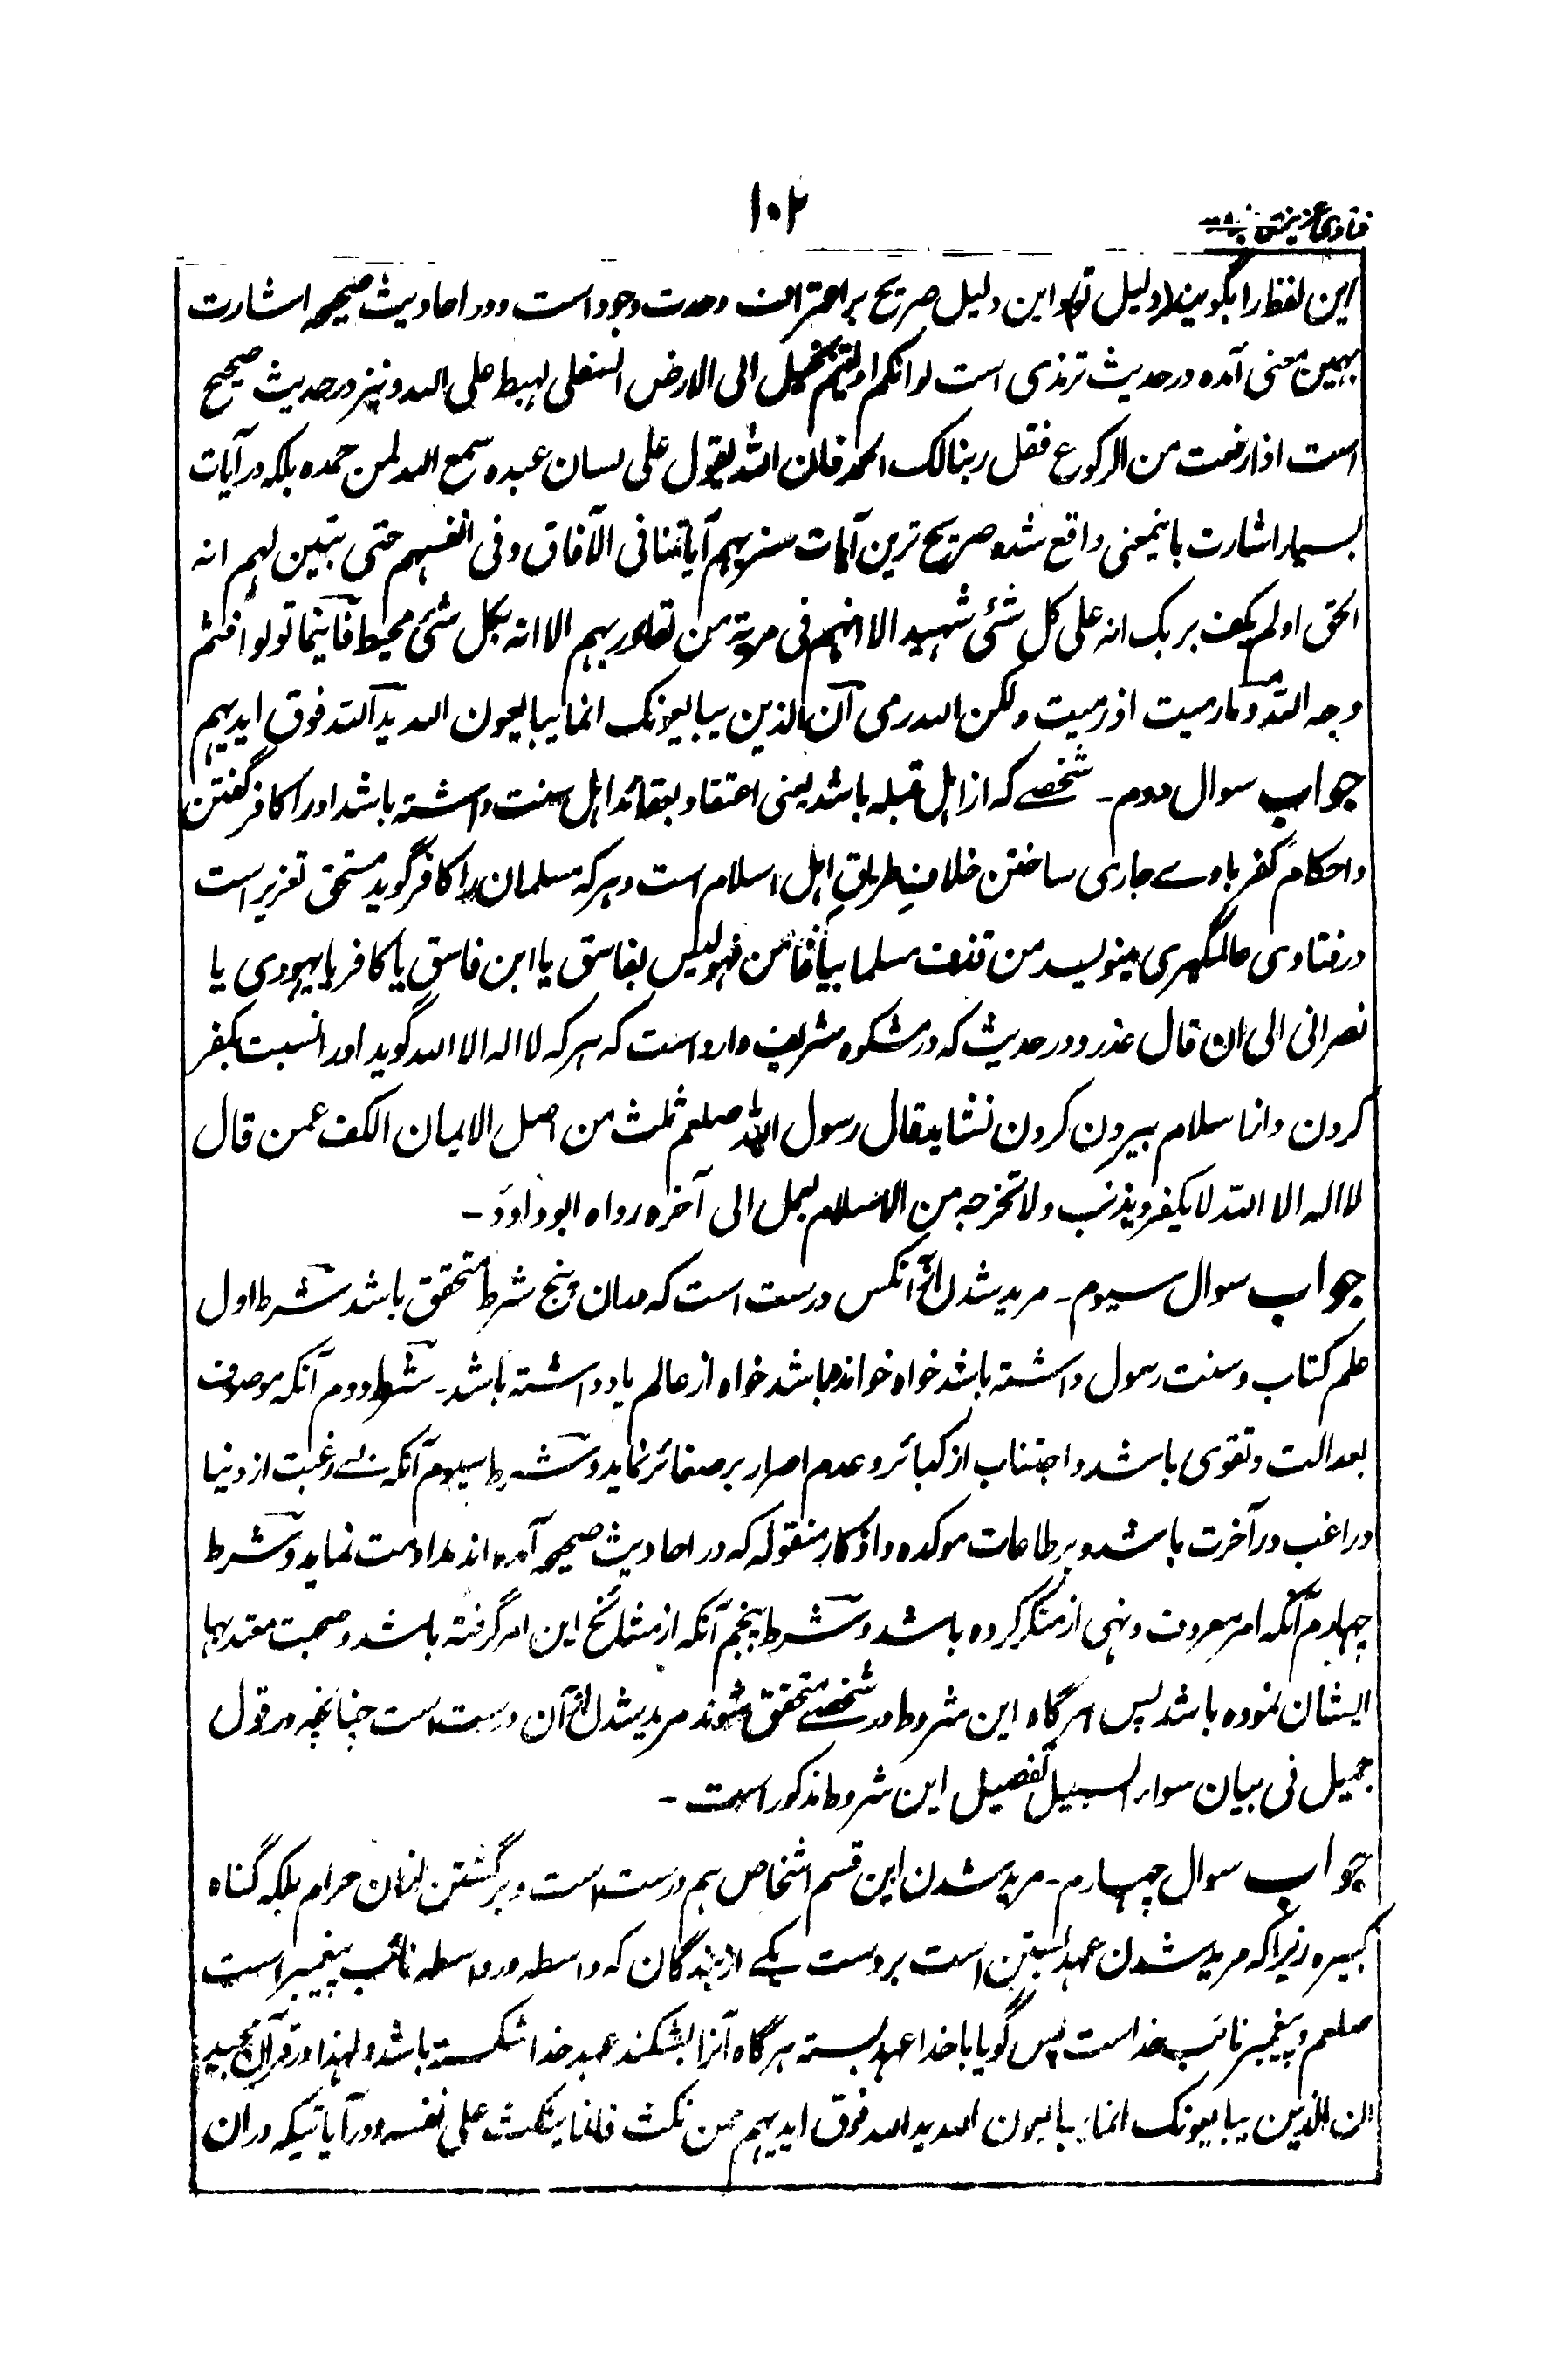 ۱۰۲
فتاوی عزیزی
این لفظ را بگویند دلیل تواند این دلیل صریح بر اعتراف وحدت وجود است و در احادیث صحیحه اشارت
بهمین معنی آمده در حدیث ترمذی است لو انکم ادلیتم بحبل الی الارض السفلی لهبط علی الله و نیز در حدیث صحیح
است اذا رفعت من الرکوع فقل ربنا لک الحمد فان الله یقول علی لسان عبده سمع الله لمن حمده بلکه در آیات
بسیار اشارت باینمعنی واقع شده صریح ترین آیات سنریهم آیاتنا فی الآفاق و فی انفسهم حتی یتبین لهم انه
الحق اولم یکف بربک انه علی کل شئی شهید الا انهم فی مریة من لقاء ربهم الا انه بکل شئی محیط فاینما تولوا فثم
وجه الله و ما رمیت اذ رمیت ولکن الله رمی ان الذین یبایعونک انما یبایعون الله ید الله فوق ایدیهم
جواب سوال دوم۔ شخصے که از اهل قبله باشد یعنی اعتقاد بعقائد اهل سنت داشته باشد او را کافر گفتن
و احکام کفر باوے جاری ساختن خلاف طریق اهل اسلام است و هر که مسلمان را کافر گوید مستحق تعزیر است
در فتاوی عالمگیری مینویسد من قذف مسلما بیا فاسق و هو لیس بفاسق یا ابن فاسق یا کافر یا یهودی یا
نصرانی الی ان قال عذر و در حدیث که در مشکوه شریف وارد است که هر که لا اله الا الله گوید او را نسبت بکفر
کردن و از اسلام بیرون کردن نشاید قال رسول الله صلعم ثلث من اصل الایمان الکف عمن قال
لا اله الا الله لا یکفر بذنب و لا تخرجه من الاسلام بعمل الی آخره رواه ابو داود۔
جواب سوال سیوم۔ مرید شدن از آنکس درست است که دران پنج شرط متحقق باشد شرط اول
علم کتاب و سنت رسول داشته باشد خواه خوانده باشد خواه از عالم یاد داشته باشد۔ شرط دوم آنکه موصوف
بعدالت و تقوی باشد و اجتناب از کبائر و عدم اصرار بر صغائر نماید و شرط سیوم آنکه بے رغبت از دنیا
و راغب در آخرت باشد و بر طاعات موکده و اذکار منقوله که در احادیث صحیحه آمده اند مداومت نماید و شرط
چهارم آنکه امر معروف و نهی از منکر کرده باشد و شرط پنجم آنکه از مشائخ این امر گرفته باشد و صحبت معتد بها
ایشان نموده باشد پس هر گاه این شروط در شخصے متحقق شوند مرید شدن از آن درست است چنانچه در قول
جمیل فی بیان سواء السبیل تفصیل این شروط مذکور است۔
جواب سوال چهارم۔ مرید شدن این قسم اشخاص هم درست است و برگشتن ازان حرام بلکه گناه
کبیره زیرا که مرید شدن عهد بستن است بر دست یکے از بندگان که واسطه در واسطه نائب پیغمبر است
صلعم و پیغمبر نائب خداست پس گویا با خدا عهد بسته هر گاه آنرا بشکند عهد خدا شکسته باشد و لهذا در قرآن مجید
ان الذین یبایعونک انما یبایعون الله ید الله فوق ایدیهم فمن نکث فانما ینکث علی نفسه و در آیاتیکه دران